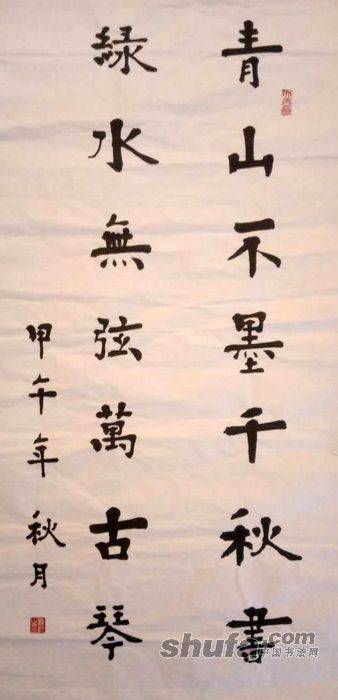 青山不墨千秋書
緑水無弦萬古琴
甲午年秋月
shufa.com
中国书法网